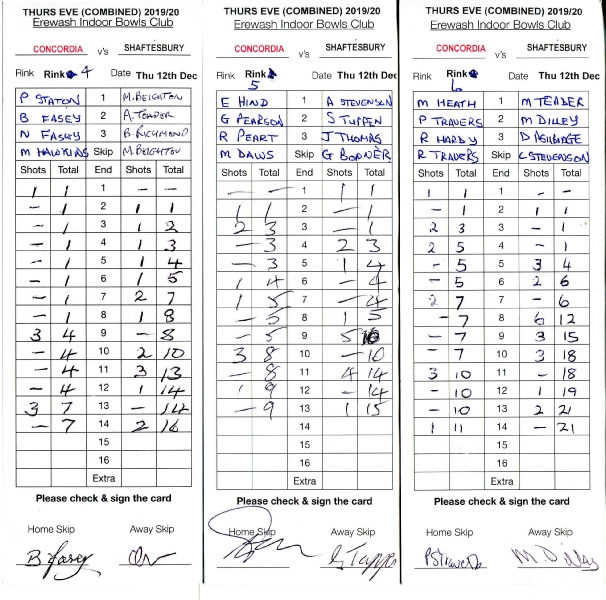 THURS EVE (COMBINED) 2019/20
Erewash Indoor Bowls Club
CONCORDIA v's SHAFTESBURY
Rink Rink 4 Date Thu 12th Dec
P STATON 1 M. BEIGHTON
B FASEY 2
N FASEY 3 B. RICHMOND
M HAWKINS Skip M. BEIGHTON
Shots Total End Shots Total
1 1 1 - -
- 1 2 1 1
- 1 3 1 2
- 1 4 1 3
- 1 5 1 4
- 1 6 1 5
- 1 7 2 7
- 1 8 1 8
3 4 9 - 8
- 4 10 2 10
- 4 11 3 13
- 4 12 1 14
3 7 13 - 14
- 7 14 2 16
15
16
Extra
Please check & sign the card
Home Skip Away Skip
B fasey
THURS EVE (COMBINED) 2019/20
Erewash Indoor Bowls Club
CONCORDIA v's SHAFTESBURY
Rink Rink 5 Date Thu 12th Dec
E HIND 1 A STEVENSON
G PEARSON 2 S TUPPEN
R PEART 3 J THOMAS
M DAWS Skip G BONNER
Shots Total End Shots Total
- - 1 1 1
1 1 2 - 1
2 3 3 - 1
- 3 4 2 3
- 3 5 1 4
1 4 6 - 4
1 5 7 - 4
- 5 8 1 5
- 5 9 5 10
3 8 10 - 10
- 8 11 4 14
1 9 12 - 14
- 9 13 1 15
14
15
16
Extra
Please check & sign the card
Home Skip Away Skip
THURS EVE (COMBINED) 2019/20
Erewash Indoor Bowls Club
CONCORDIA v's SHAFTESBURY
Rink Rink 6 Date Thu 12th Dec
M HEATH 1 M TEADER
P TRAVERS 2 M DILLEY
R HARDY 3
R TRAVERS Skip C STEVENSON
Shots Total End Shots Total
1 1 1 - -
- 1 2 1 1
2 3 3 - 1
2 5 4 - 1
- 5 5 3 4
- 5 6 2 6
2 7 7 - 6
- 7 8 6 12
- 7 9 3 15
- 7 10 3 18
3 10 11 - 18
- 10 12 1 19
- 10 13 2 21
1 11 14 - 21
15
16
Extra
Please check & sign the card
Home Skip Away Skip
M Dilley